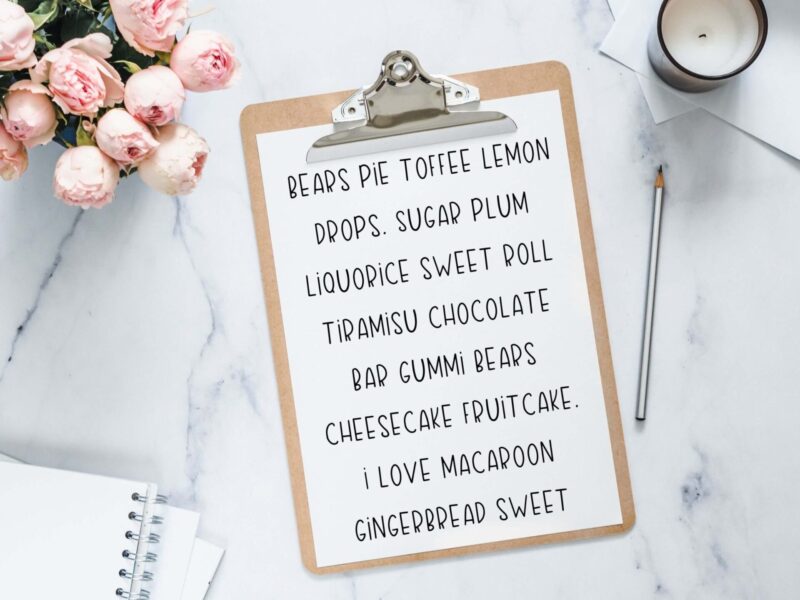 BEARS PiE TOFFEE LEMON
DROPS. SUGAR PLUM
LiQUORiCE SWEET ROLL
TiRAMiSU CHOCOLATE
BAR GUMMi BEARS
CHEESECAKE FRUiTCAKE.
i LOVE MACAROON
GiNGERBREAD SWEET